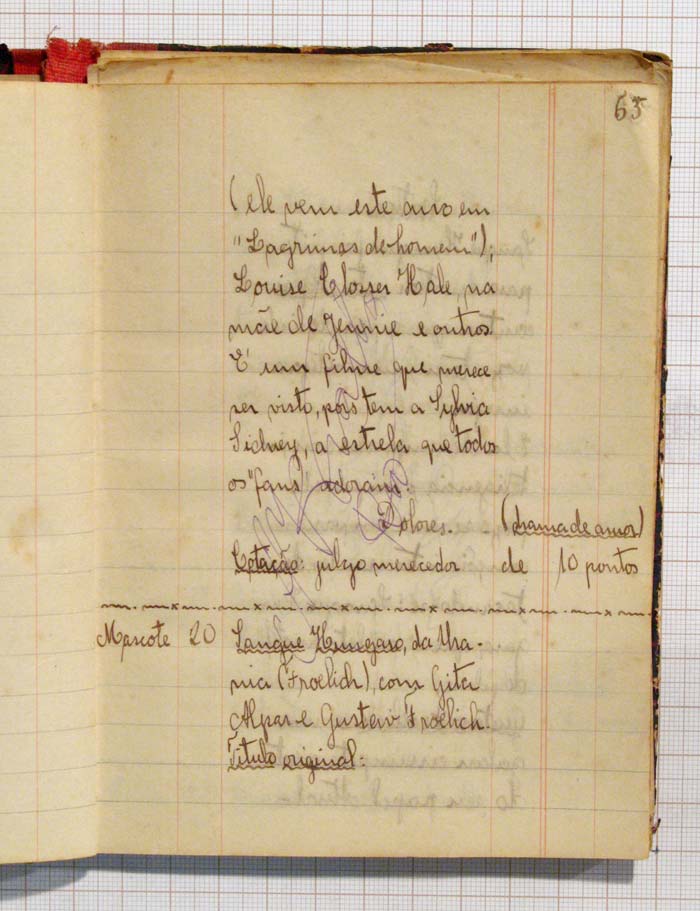 63
(ele vem este ano em
"Lagrimas de homem");
Louise Closser Hale, na
mãe de Jennie e outros
É um filme que merece
ser visto, pois tem a Sylvia
Sidney, a estrela que todos
os "fans" adoram.
Dolores. (drama de amor)
Cotação: julgo merecedor de 10 pontos
Mascote 20 Sangue Hungaro, da Ura-
nia (Froelich), com Gita
Alpar e Gustav Froelich.
Titulo original: